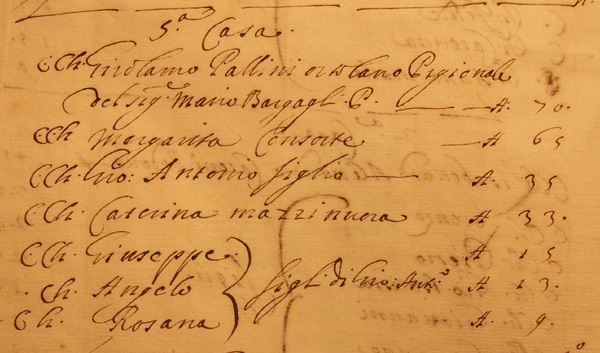 5.ª Casa.
C:Ch. Girolamo Pallini ortolano Pigionale
del sig.r Mario Bargagli. P. — A. 70.
C:Ch Margarita Consorte — A 65
C:Ch. Gio: Antonio figlio — A. 35
C:Ch. Caterina mazzi nuora A 33.
C:Ch. Giuseppe. A 15
Ch. Angelo figli di Gio: Ant.o A 13.
Ch. Rosana A. 9.